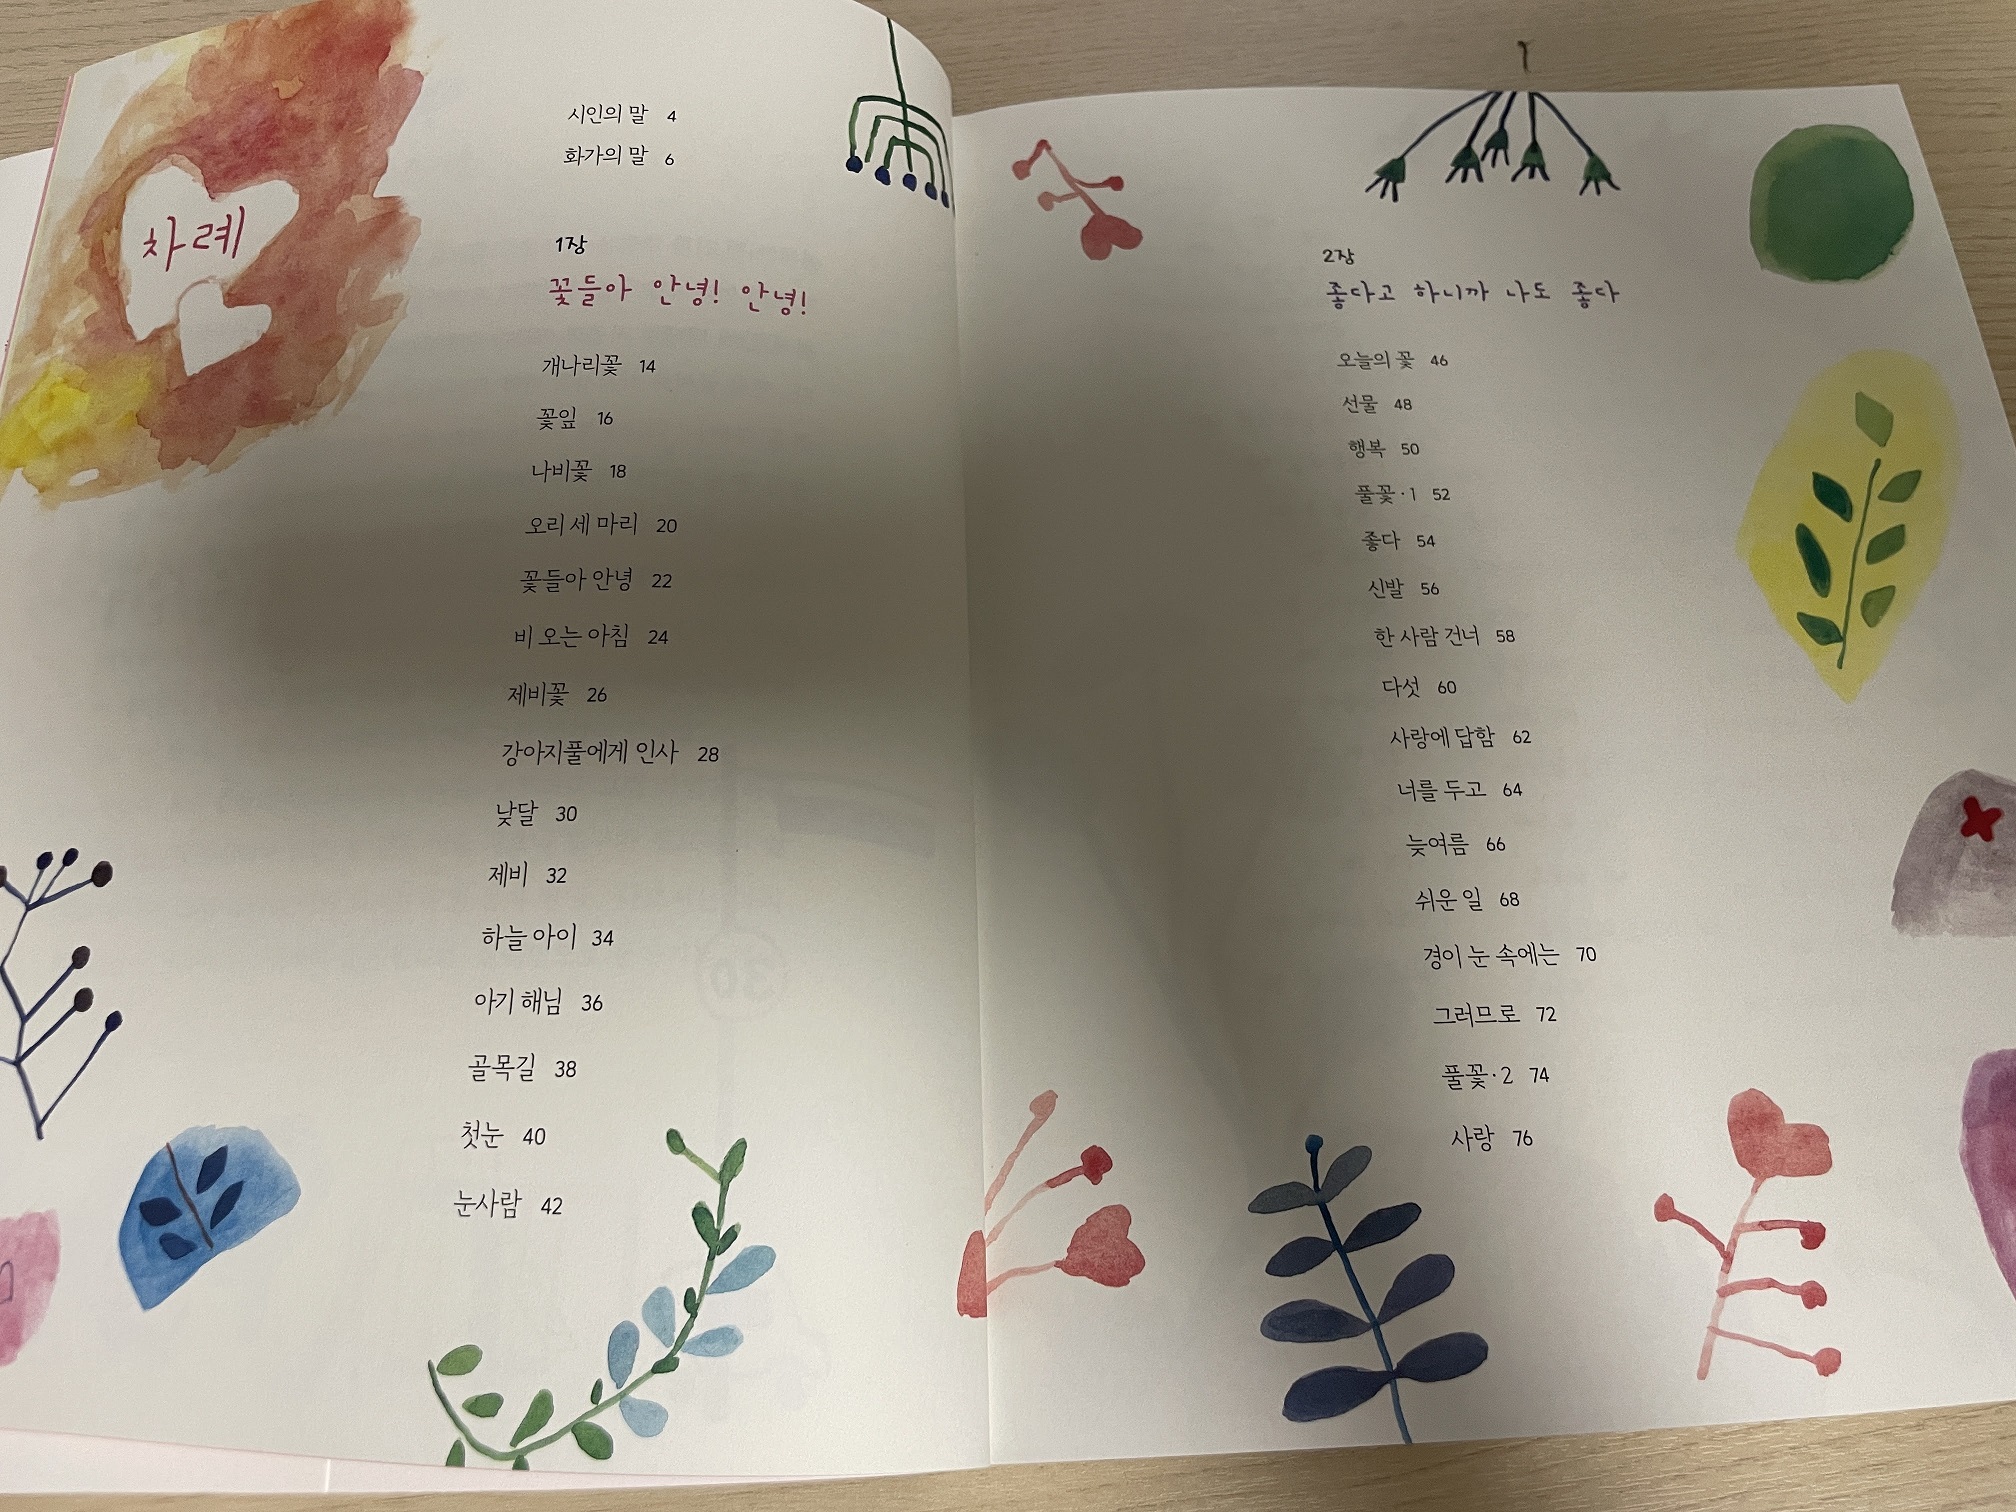 차례
시인의 말 4
화가의 말 6
1장
꽃들아 안녕! 안녕!
개나리꽃 14
꽃잎 16
나비꽃 18
오리 세 마리 20
꽃들아 안녕 22
비 오는 아침 24
제비꽃 26
강아지풀에게 인사 28
낮달 30
제비 32
하늘 아이 34
아기 해님 36
골목길 38
첫눈 40
눈사람 42
2장
좋다고 하니까 나도 좋다
오늘의 꽃 46
선물 48
행복 50
풀꽃·1 52
좋다 54
신발 56
한 사람 건너 58
다섯 60
사랑에 답함 62
너를 두고 64
늦여름 66
쉬운 일 68
경이 눈 속에는 70
그러므로 72
풀꽃·2 74
사랑 76